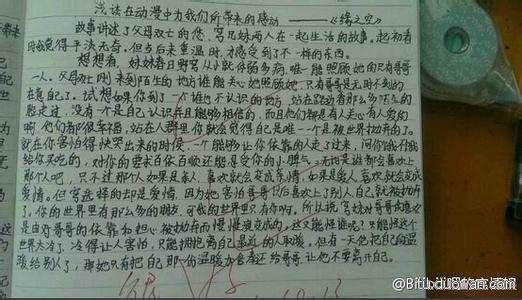 浅谈在动漫中为我们所带来的感动 ——《缘之空》
故事讲述了父母双亡的悠、穹兄妹两人在一起生活的故事。起初看
时我觉得平淡无奇。但当后来重温时,才感受到了不一样的东西。
想想看,妹妹春日野穹从小就体弱多病,唯一能照顾她的只有哥哥
一人。父母双亡刚来到陌生的地方谁能关心她照顾她,只有哥哥是无时不刻的
在意自己了。试想如果你到了一个谁也不认识的地方,站在路旁看那么多陌生的
脸走过,没有一个是自己认识并且能够相信的,而且他们都是有人关心有人爱的
啊,他们都那很幸福,站在人群里你就会觉得自己是唯一一个是被世界抛弃的了。
就在你害怕得快哭出来的时候,一个能够让你依靠的人走了过来,问你饿不饿
给你买吃的,对你的要求百依百顺还能忍受你的小脾气,无论是谁都会喜欢上
那个人吧,只不过那个人如果是亲人,喜欢就会变成亲情,如果是爱人喜欢就会变成
爱情。但穹选择的却是爱情,因为她害怕哥哥以后喜欢上了别人自己就被抛弃
了。你的世界里有那么多的朋友,可我的世界里只有你啊。所以说,穹妹对哥哥的喜欢
是由对哥哥的依靠,如担心被抛弃而慢慢演变成的,这又能怪谁呢?只能怪这个
世界太冷了,冷得让人害怕,只能拥抱离自己最近的人取暖,但有一天他把自己的温
暖给别人了,那她只有把自己那一份温暖加倍还给哥哥,让他不要离开自己。